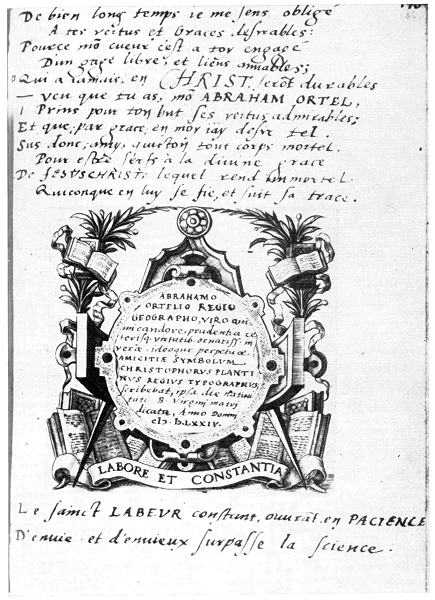 De bien long temps ie me sens obligé
A tes vertus et Graces desirables:
Pource mõ cueur c'est a toy engagé
D'un gage libre, et liens amiables;
Qui a iamais, en CHRIST, serõt durables
— veu que tu as, mõ ABRAHAM ORTEL,
Prins pour ton but ses vertus admirables;
Et que, par grace, en moy iay desir tel.
Sus donc, amy, quictõn tout corps mortel.
Pour estre serfs a la divine grace
De JESUSCHRIST: lequel rend immortel
Quiconque en luy se fie, et suit sa trace.
ABRAHAMO
ORTELIO REGIO
GEOGRAPHO, VIRO
candore, prudentia ce
terisq. virtutib. ornatiss.
ideoque perpetuæ
AMICITIÆ SYMBOLUM
CHRISTOPHORUS PLANTI
NUS REGIUS TYPOGRAPHUS,
scribebat, ipsa die nativi
tati B. Virgini matri
dicata, Anno Domni
cIɔ. D. LXXIV.
LABORE ET CONSTANTIA
Le sainct LABEUR constant, ouurãt en PACIENCE
D'envie et d'envieux surpasse la science.